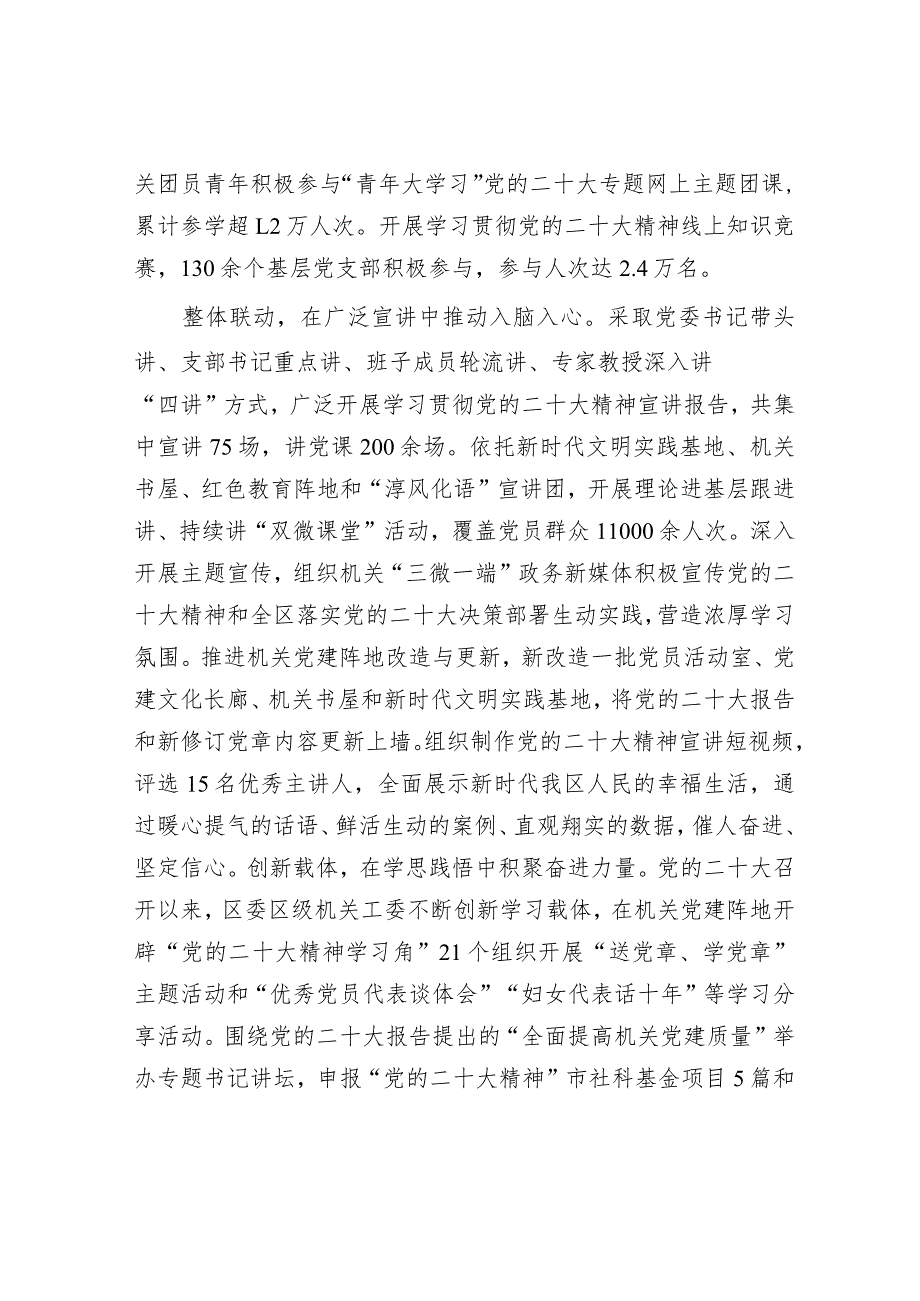 关团员青年积极参与“青年大学习”党的二十大专题网上主题团课,
累计参学超 L2 万人次。开展学习贯彻党的二十大精神线上知识竞
赛，130 余个基层党支部积极参与，参与人次达 2.4 万名。
整体联动，在广泛宣讲中推动入脑入心。采取党委书记带头
讲、支部书记重点讲、班子成员轮流讲、专家教授深入讲
“四讲”方式，广泛开展学习贯彻党的二十大精神宣讲报告，共集
中宣讲 75 场，讲党课 200 余场。依托新时代文明实践基地、机关
书屋、红色教育阵地和“淳风化语”宣讲团，开展理论进基层跟进
讲、持续讲“双微课堂”活动，覆盖党员群众 11000 余人次。深入
开展主题宣传，组织机关“三微一端”政务新媒体积极宣传党的二
十大精神和全区落实党的二十大决策部署生动实践，营造浓厚学习
氛围。推进机关党建阵地改造与更新，新改造一批党员活动室、党
建文化长廊、机关书屋和新时代文明实践基地，将党的二十大报告
和新修订党章内容更新上墙。组织制作党的二十大精神宣讲短视频，
评选 15 名优秀主讲人，全面展示新时代我区人民的幸福生活，通
过暖心提气的话语、鲜活生动的案例、直观翔实的数据，催人奋进、
坚定信心。创新载体，在学思践悟中积聚奋进力量。党的二十大召
开以来，区委区级机关工委不断创新学习载体，在机关党建阵地开
辟“党的二十大精神学习角”21 个组织开展“送党章、学党章”
主题活动和“优秀党员代表谈体会”“妇女代表话十年”等学习分
享活动。围绕党的二十大报告提出的“全面提高机关党建质量”举
办专题书记讲坛，申报“党的二十大精神”市社科基金项目 5 篇和